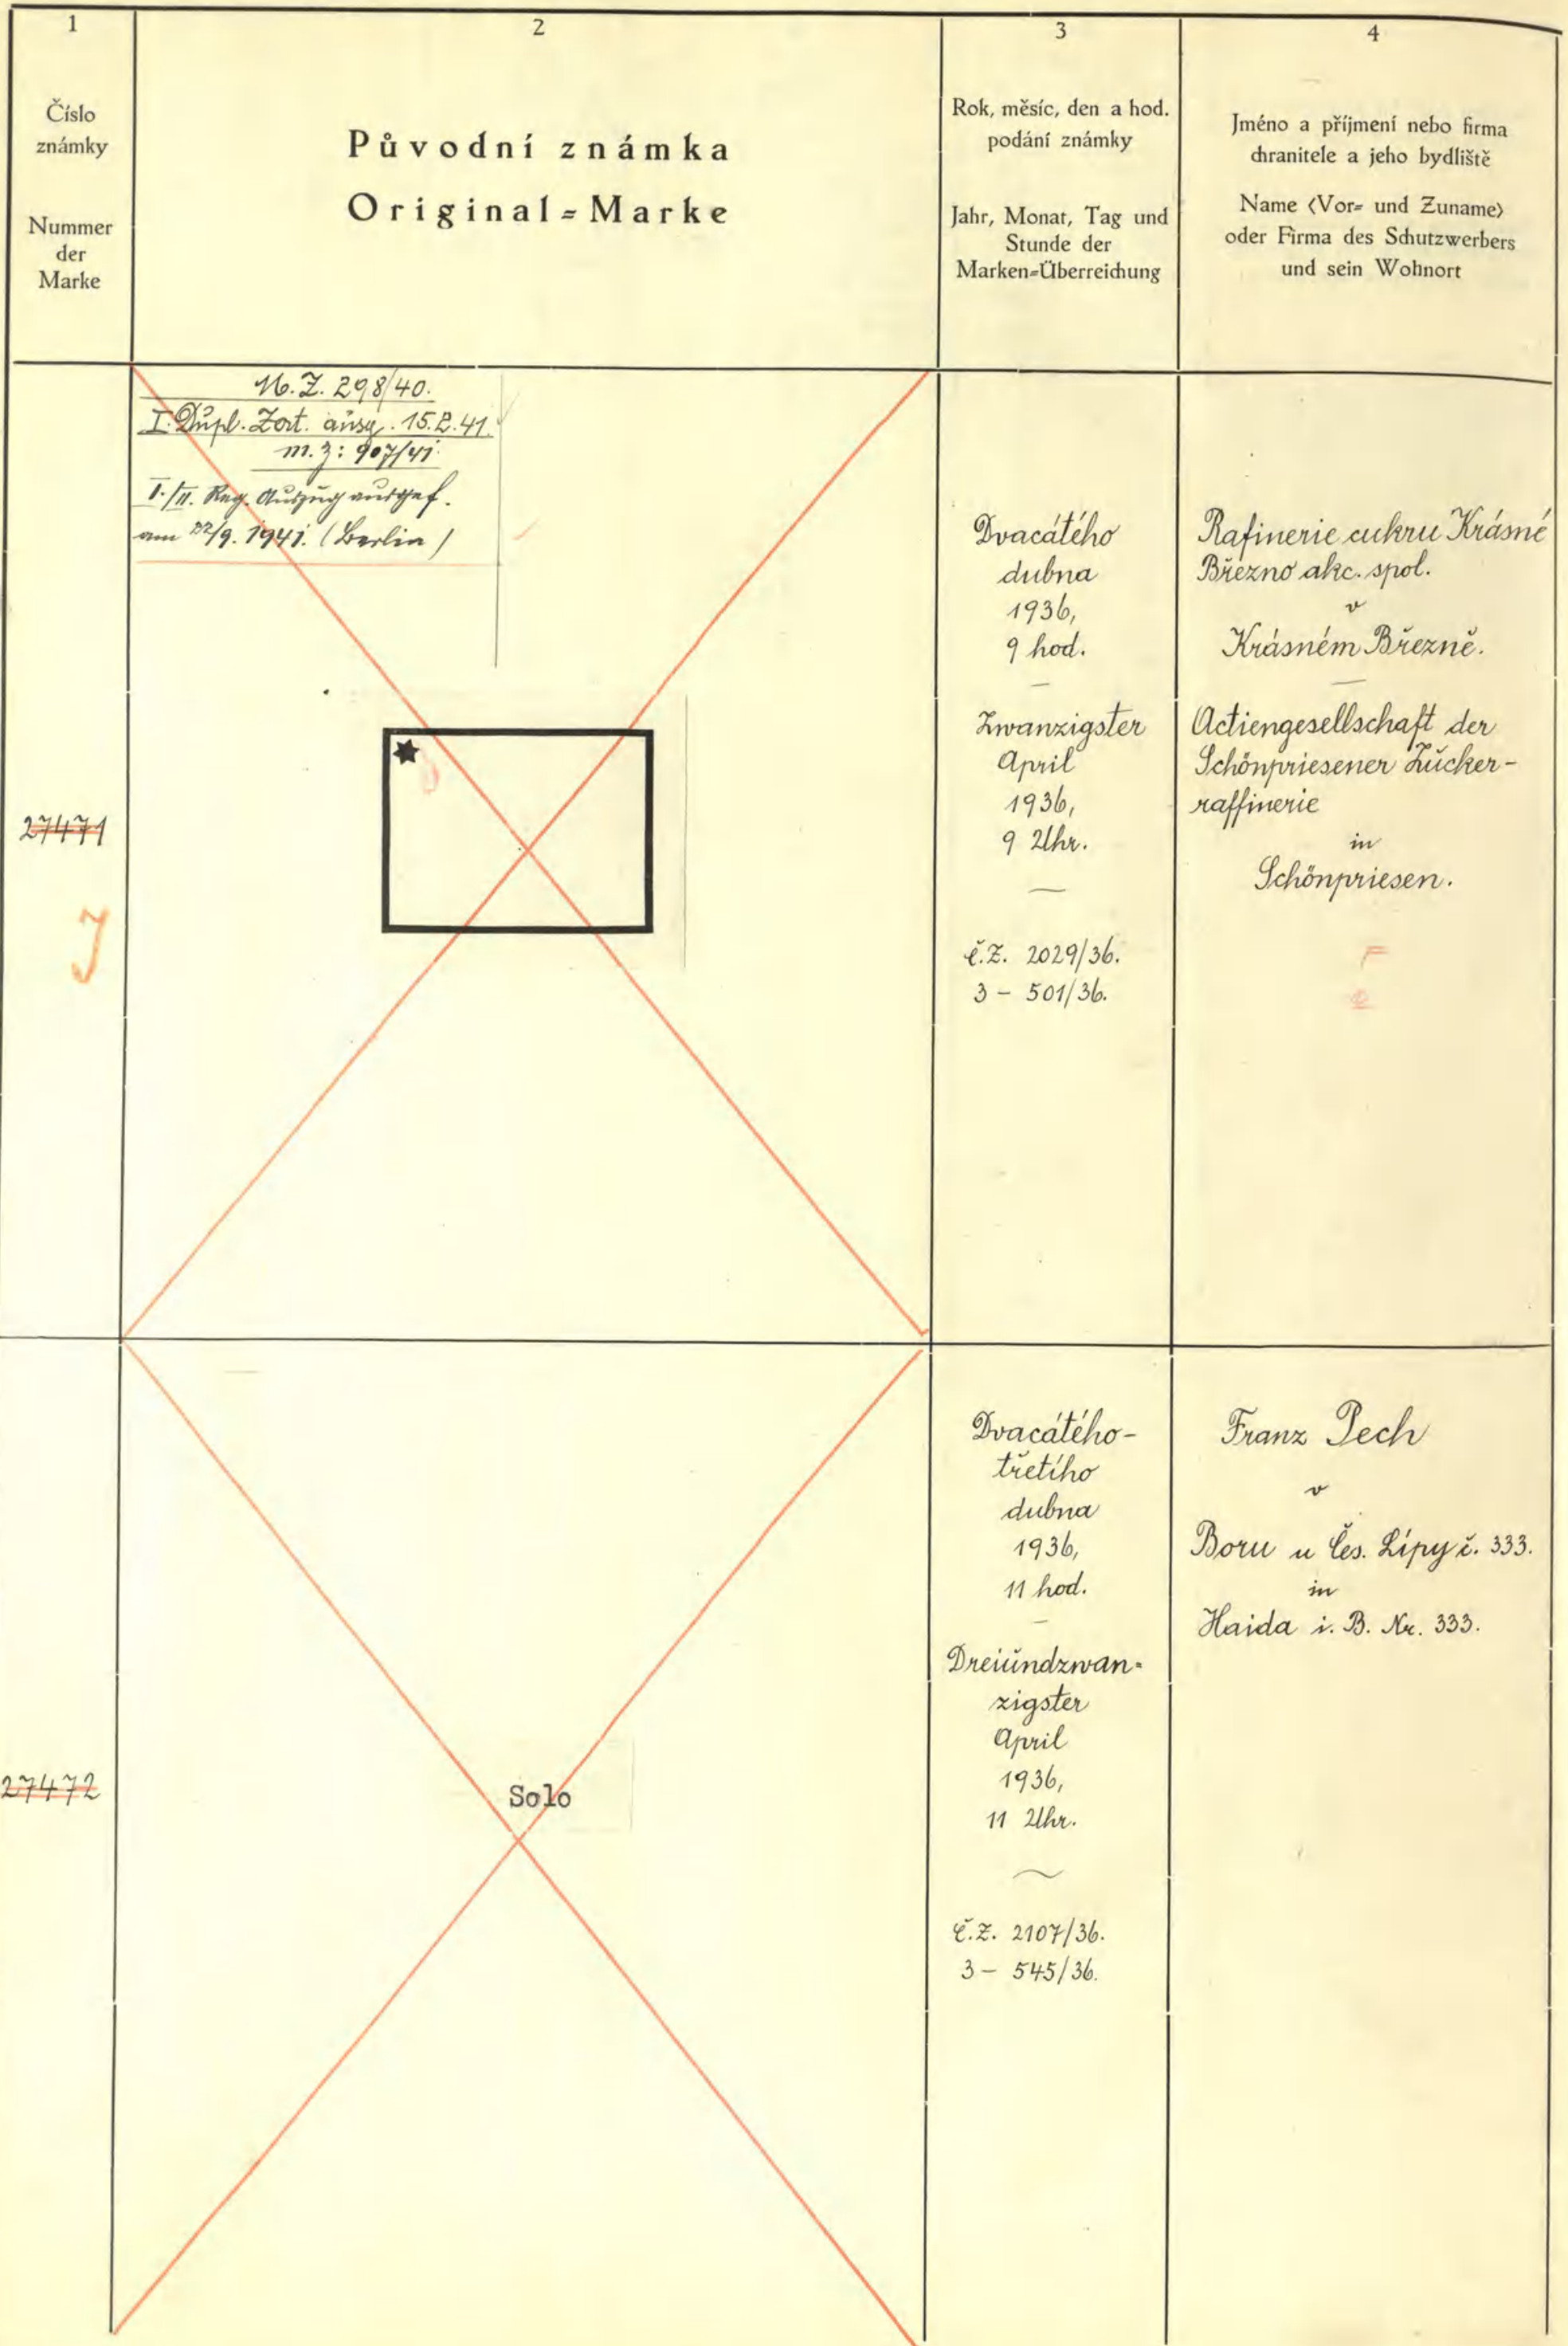 1
Číslo
známky
Nummer
der
Marke
2
Původní známka
Original=Marke
3
Rok, měsíc, den a hod.
podání známky
Jahr, Monat, Tag und
Stunde der
Marken=Überreichung
4
Jméno a příjmení nebo firma
chranitele a jeho bydliště
Name (Vor= und Zuname)
oder Firma des Schutzwerbers
und sein Wohnort
27471
M.Z. 298/40.
I. Dupl. Zert. ausg. 15.2.41.
m.z: 907/41.
I./II. Reg. Auszug ausgef.
am 22/9. 1941. (Berlin)
Dvacátého
dubna
1936,
9 hod.
Zwanzigster
April
1936,
9 Uhr.
č.z. 2029/36.
3 – 501/36.
Rafinerie cukru Krásné
Březno akc. spol.
v
Krásném Březně.
Actiengesellschaft der
Schönpriesener Zucker-
raffinerie
in
Schönpriesen.
27472
Solo
Dvacátého-
třetího
dubna
1936,
11 hod.
Dreiundzwan=
zigster
April
1936,
11 Uhr.
č.z. 2107/36.
3 – 545/36.
Franz Pech
v
Boru u Čes. Lípy č. 333.
in
Haida i. B. Nr. 333.